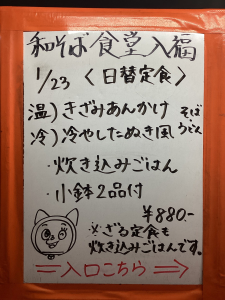 和そば食堂入福
1/23 〈日替定食〉
温) きざみあんかけ
冷) 冷やしたぬき風
そば
うどん
・炊き込みごはん
・小鉢2品付
¥880-
※ざる定食も
炊き込みごはんです。
⇒入口こちら⇒